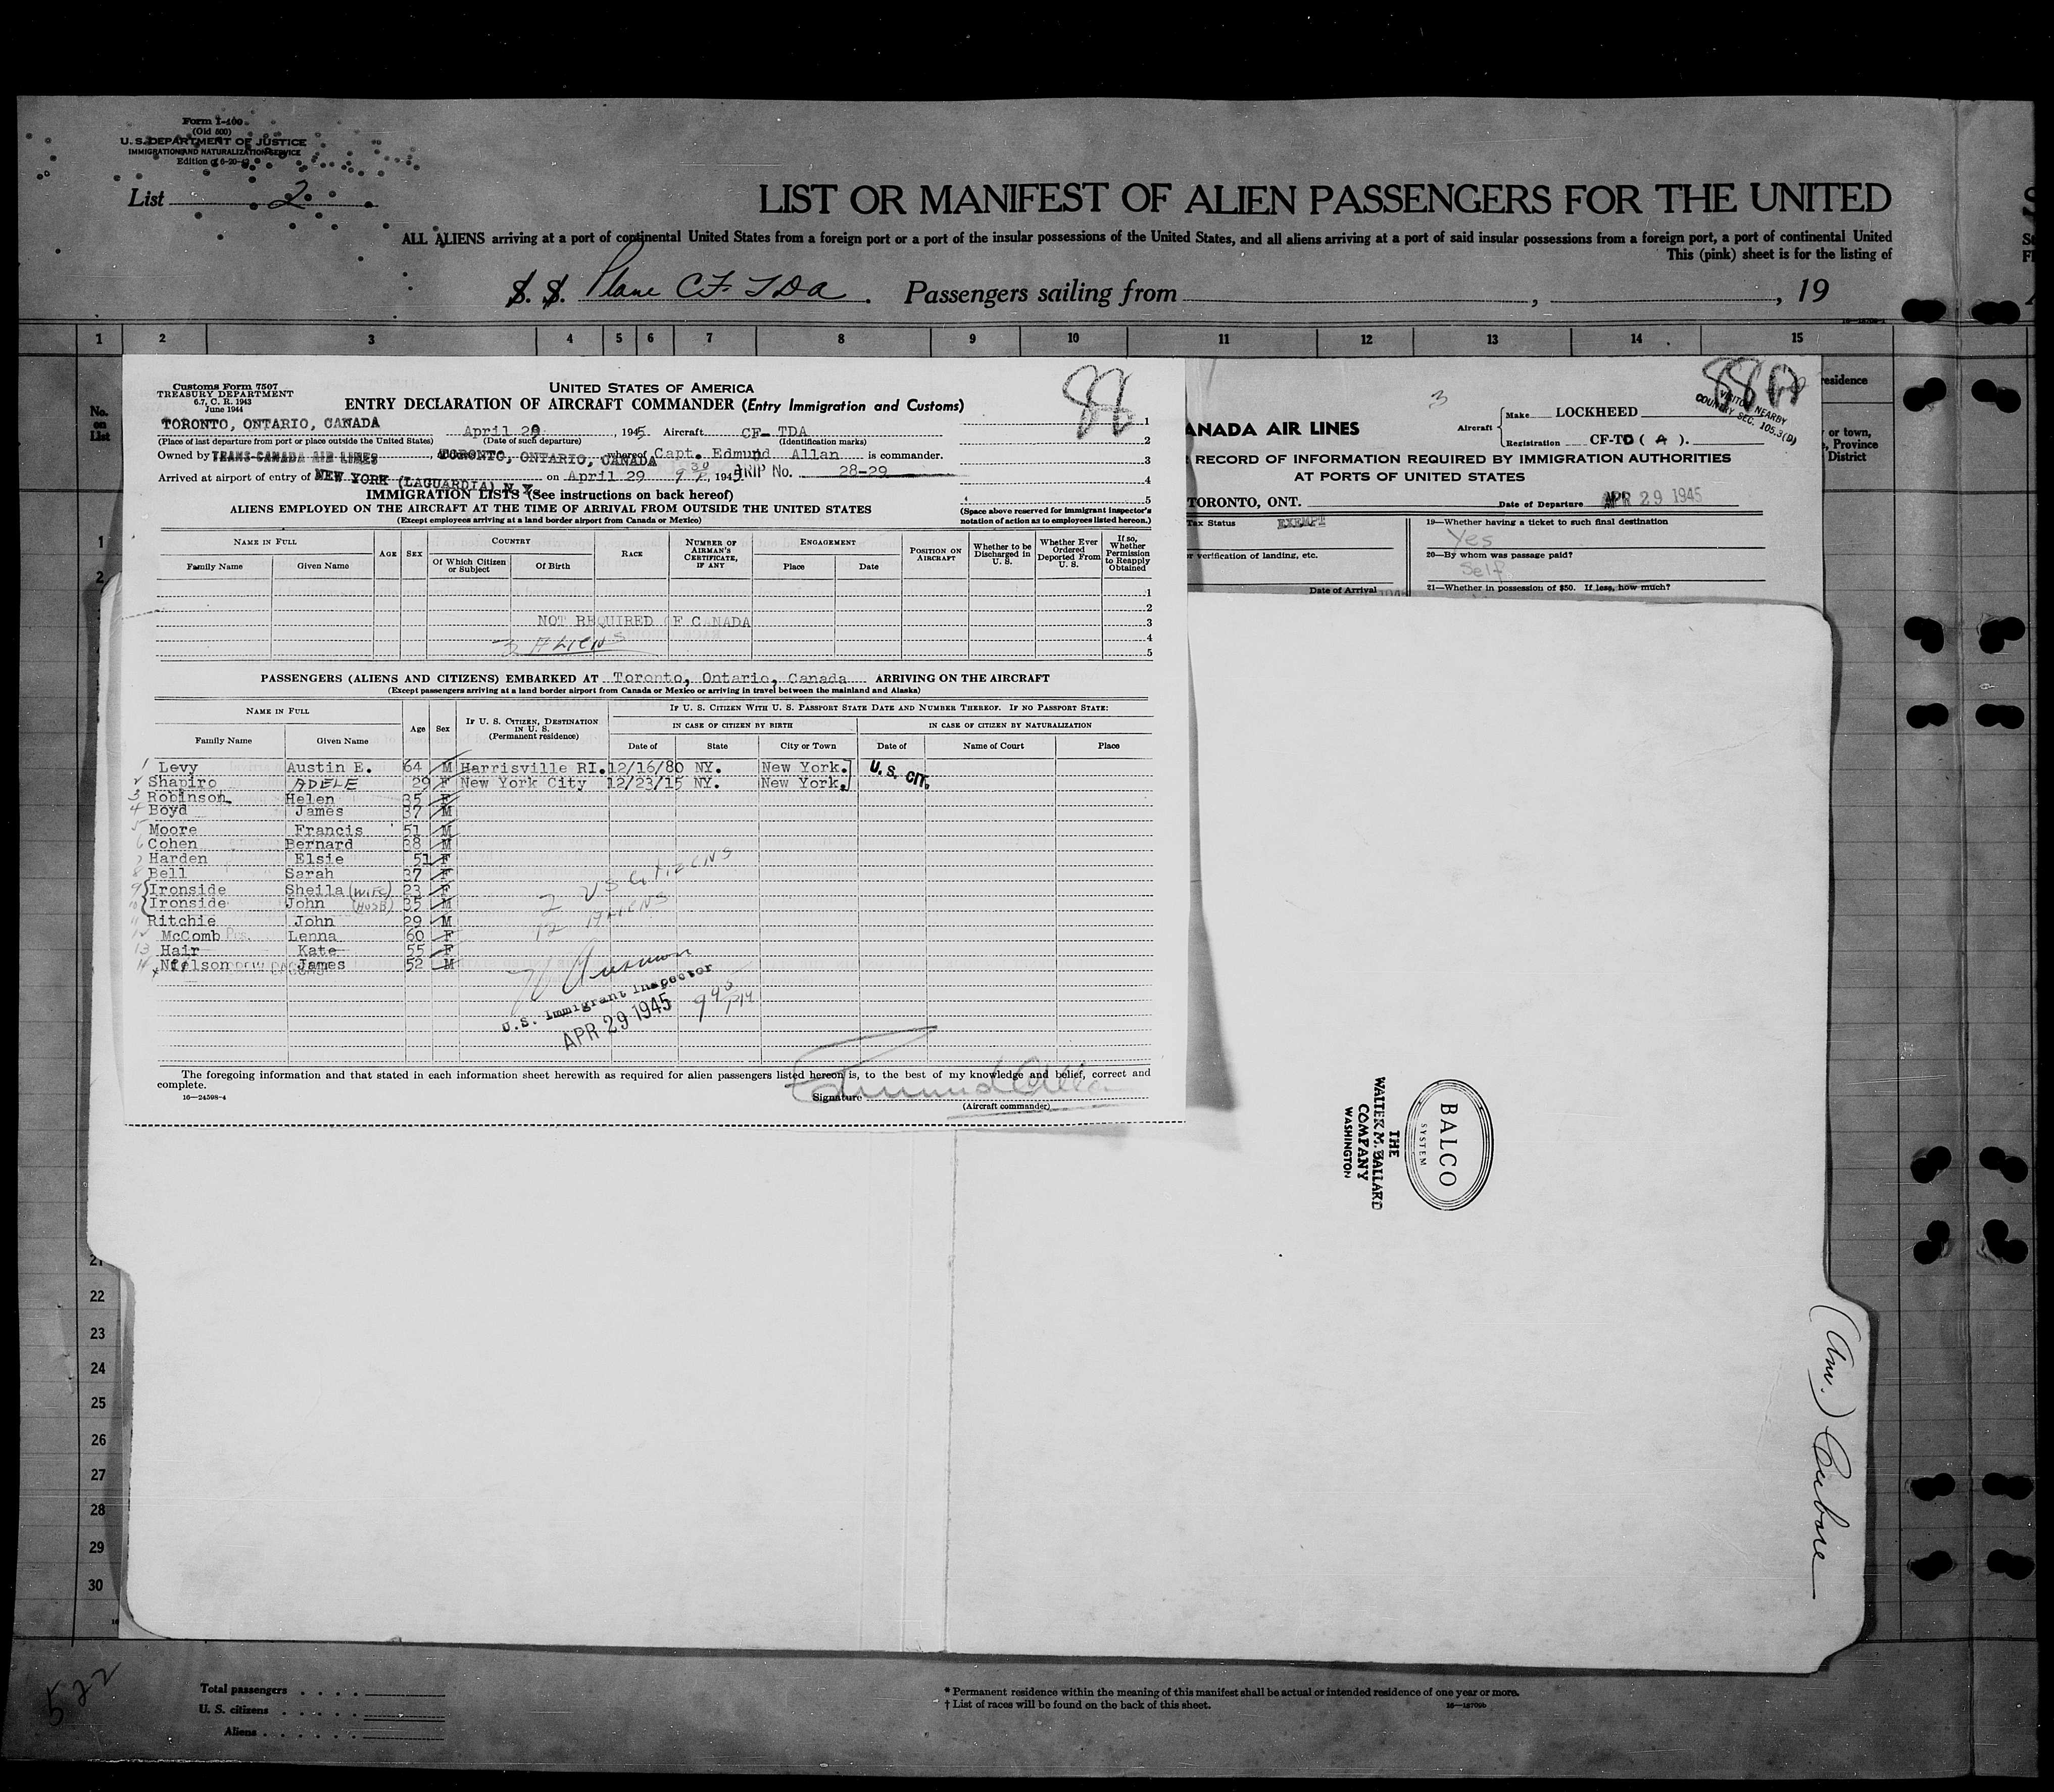 Form I-400
(Old 500)
U. S. DEPARTMENT OF JUSTICE
IMMIGRATION AND NATURALIZATION SERVICE
List 2
LIST OR MANIFEST OF ALIEN PASSENGERS FOR THE UNITED
ALL ALIENS arriving at a port of continental United States from a foreign port or a port of the insular possessions of the United States, and all aliens arriving at a port of said insular possessions from a foreign port, a port of continental United
This (pink) sheet is for the listing of
S. S. Plane CF-TDA. Passengers sailing from , , 19
1 2 3 4 5 6 7 8 9 10 11 12 13 14 15
No. on List
residence
or town,
Province
District
1
2
Customs Form 7507
TREASURY DEPARTMENT
6.7, C. R. 1943
June 1944
UNITED STATES OF AMERICA
ENTRY DECLARATION OF AIRCRAFT COMMANDER (Entry Immigration and Customs)
88
TORONTO, ONTARIO, CANADA April 29, 1945 Aircraft CF-TDA
(Place of last departure from port or place outside the United States) (Date of such departure) (Identification marks)
Owned by TRANS-CANADA AIR LINES, TORONTO, ONTARIO, CANADA whereof Capt. Edmund Allan is commander.
Arrived at airport of entry of NEW YORK (LAGUARDIA) N.Y. on April 29 9 30, 1945 TRIP No. 28-29
1
2
3
4
5
(Space above reserved for immigrant inspector's notation of action as to employees listed hereon.)
IMMIGRATION LISTS (See instructions on back hereof)
ALIENS EMPLOYED ON THE AIRCRAFT AT THE TIME OF ARRIVAL FROM OUTSIDE THE UNITED STATES
(Except employees arriving at a land border airport from Canada or Mexico)
NAME IN FULL AGE SEX COUNTRY RACE NUMBER OF AIRMAN'S CERTIFICATE, IF ANY ENGAGEMENT POSITION ON AIRCRAFT Whether to be Discharged in U. S. Whether Ever Ordered Deported From U. S. If so, Whether Permission to Reapply Obtained
Family Name Given Name Of Which Citizen or Subject Of Birth Place Date
1
2
NOT REQUIRED OF CANADA 3
3 ALIENS 4
5
PASSENGERS (ALIENS AND CITIZENS) EMBARKED AT Toronto, Ontario, Canada ARRIVING ON THE AIRCRAFT
(Except passengers arriving at a land border airport from Canada or Mexico or arriving in travel between the mainland and Alaska)
NAME IN FULL Age Sex IF U. S. CITIZEN, DESTINATION IN U. S. (Permanent residence) IF U. S. CITIZEN WITH U. S. PASSPORT STATE DATE AND NUMBER THEREOF. IF NO PASSPORT STATE:
IN CASE OF CITIZEN BY BIRTH IN CASE OF CITIZEN BY NATURALIZATION
Family Name Given Name Date of State City or Town Date of Name of Court Place
1 Levy Austin E. 64 M Harrisville RI. 12/16/80 NY. New York. U. S. CIT.
2 Shapiro ADELE 29 F New York City 12/23/15 NY. New York.
3 Robinson Helen 35 F
4 Boyd James 37 M
5 Moore Francis 51 M
6 Cohen Bernard 38 M
7 Harden Elsie 51 F
8 Bell Sarah 37 F
9 Ironside Sheila (WIFE) 23 F
10 Ironside John (HUSB) 35 M
11 Ritchie John 29 M
12 McComb Lenna 60 F
13 Hair Kate 55 F
14 Neilson James 52 M
2 US CITIZENS
12 ALIENS
U.S. Immigrant Inspector
APR 29 1945 9 45 PM
The foregoing information and that stated in each information sheet herewith as required for alien passengers listed hereon is, to the best of my knowledge and belief, correct and
complete.
16—24598-4
Signature Edmund Allan
(Aircraft commander)
3
88
VISITOR NEARBY
COUNTRY SEC. 105.3(D)
ANADA AIR LINES
Aircraft Make LOCKHEED
Registration CF-TD ( A ).
RECORD OF INFORMATION REQUIRED BY IMMIGRATION AUTHORITIES
AT PORTS OF UNITED STATES
TORONTO, ONT. Date of Departure APR 29 1945
Tax Status EXEMPT
verification of landing, etc.
Date of Arrival
19—Whether having a ticket to such final destination
Yes
20—By whom was passage paid?
Self
21—Whether in possession of $50. If less, how much?
BALCO
SYSTEM
THE
WALTER M. BALLARD
COMPANY
WASHINGTON
21
22
23
24
25
26
27
28
29
30
522
Total passengers
U. S. citizens
Aliens
* Permanent residence within the meaning of this manifest shall be actual or intended residence of one year or more.
† List of races will be found on the back of this sheet.